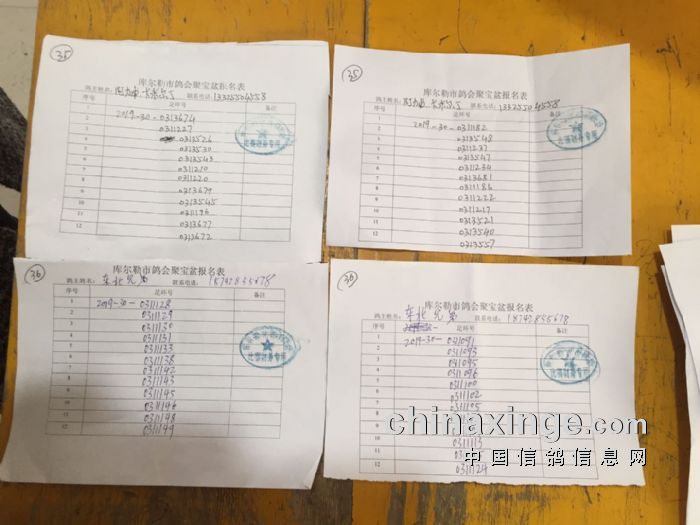 35
库尔勒市鸽会聚宝盆报名表
鸽主姓名: 联系电话: 13325504558
序号 足环号 备注
1 2019-30-0313674
2 0311227
3 0313526
4 0313530
5 0313543
6 0311210
7 0311220
8 0313679
9 0313545
10 0311196
11 0313677
12 0313672
35
库尔勒市鸽会聚宝盆报名表
鸽主姓名: 联系电话: 13325504558
序号 足环号 备注
1 2019-30-0311182
2 0313548
3 0311237
4 0313547
5 0311234
6 0313681
7 0311186
8 0311222
9 0311217
10 0313521
11 0313540
12 0313557
36
库尔勒市鸽会聚宝盆报名表
鸽主姓名: 东北兄弟 联系电话: 18742855678
序号 足环号 备注
1 2019-30-0311128
2 0311129
3 0311130
4 0311131
5 0311133
6 0311138
7 0311142
8 0311143
9 0311145
10 0311146
11 0311148
12 0311149
36
库尔勒市鸽会聚宝盆报名表
鸽主姓名: 东北兄弟 联系电话: 18742855678
序号 足环号 备注
1 2019-30-0311091
2 0311093
3 0311095
4 0311096
5 0311100
6 0311102
7 0311105
10 0311113
12 0311124
chinaxinge.com
中国信鸽信息网